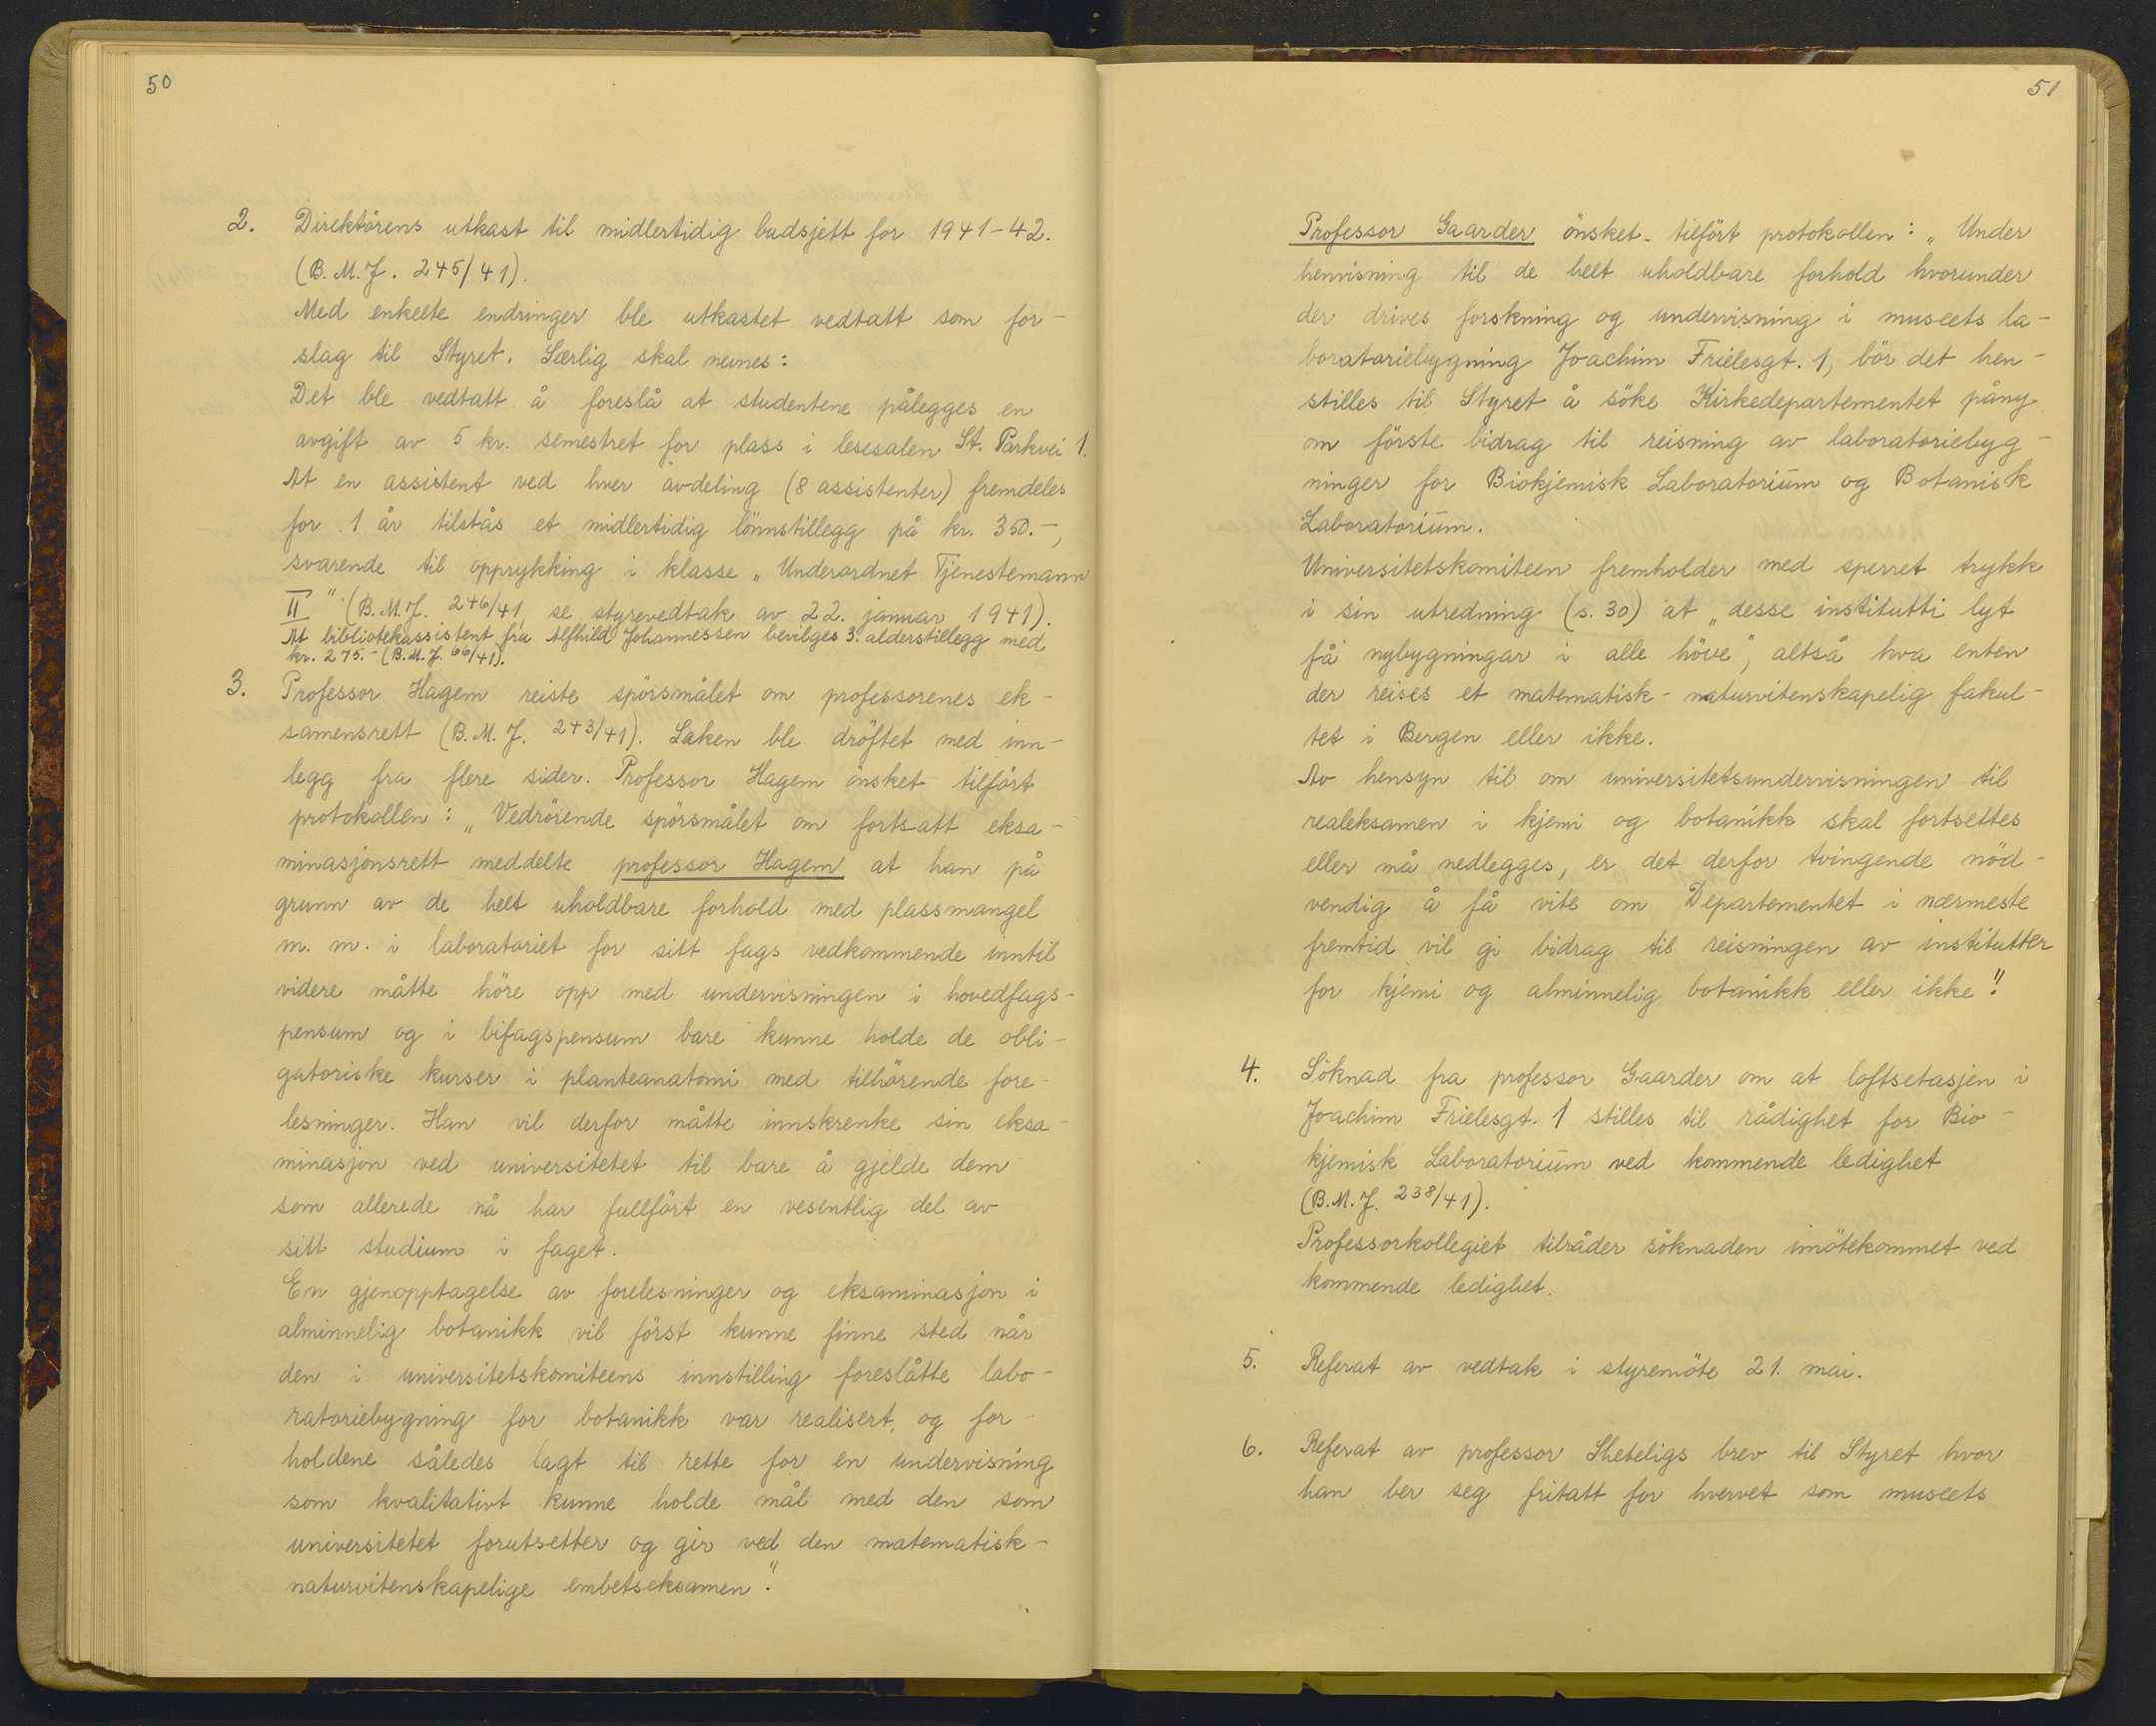 50
2. Direktörens utkast til midlertidig budsjett for 1941-42.
(B. M. J. 245/41).
Med enkelte endringer ble utkastet vedtatt som for-
slag til Styret. Særlig skal nevnes:
Det ble vedtatt å foreslå at studentene pålegges en
avgift av 5 kr. semestret for plass i lesesalen St. Parkvei 1.
At en assistent ved hver avdeling (8 assistenter) fremdeles
for 1 år tilstås et midlertidig lönnstillegg på kr. 350.-,
svarende til opprykking i klasse „Underordnet Tjenestemann
II" (B. M. J. 246/41, se styrevedtak av 22. januar 1941).
At bibliotekassistent fru Alfhild Johannessen bevilges 3. alderstillegg med
kr. 275.- (B. M. J. 66/41).
3. Professor Hagem reiste spörsmålet om professorenes ek-
samensrett (B. M. J. 243/41). Saken ble dröftet med inn-
legg fra flere sider. Professor Hagem önsket tilfört
protokollen: „Vedrörende spörsmålet om fortsatt eksa-
minasjonsrett meddelte professor Hagem at han på
grunn av de helt uholdbare forhold med plassmangel
m. m. i laboratoriet for sitt fags vedkommende inntil
videre måtte höre opp med undervisningen i hovedfags-
pensum og i bifagspensum bare kunne holde de obli-
gatoriske kurser i planteanatomi med tilhörende fore-
lesninger. Han vil derfor måtte innskrenke sin eksa-
minasjon ved universitetet til bare å gjelde dem
som allerede nå har fullfört en vesentlig del av
sitt studium i faget.
En gjenopptagelse av forelesninger og eksaminasjon i
alminnelig botanikk vil först kunne finne sted når
den i universitetskomiteens innstilling foreslåtte labo-
ratoriebygning for botanikk var realisert, og for-
holdene således lagt til rette for en undervisning
som kvalitativt kunne holde mål med den som
universitetet forutsetter og gir ved den matematisk-
naturvitenskapelige embetseksamen".
51
Professor Gaarder önsket tilfört protokollen: „Under
henvisning til de helt uholdbare forhold hvorunder
der drives forskning og undervisning i museets la-
boratoriebygning Joachim Frielesgt. 1, bör det hen-
stilles til Styret å söke Kirkedepartementet påny
om förste bidrag til reisning av laboratoriebyg-
ninger for Biokjemisk Laboratorium og Botanisk
Laboratorium.
Universitetskomiteen fremholder med sperret trykk
i sin utredning (s. 30) at „desse institutti lyt
få nybygningar i alle höve", altså hva enten
der reises et matematisk-naturvitenskapelig fakul-
tet i Bergen eller ikke.
Av hensyn til om universitetsundervisningen til
realeksamen i kjemi og botanikk skal fortsettes
eller må nedlegges, er det derfor tvingende nöd-
vendig å få vite om Departementet i nærmeste
fremtid vil gi bidrag til reisningen av institutter
for kjemi og alminnelig botanikk eller ikke".
4. Söknad fra professor Gaarder om at loftsetasjen i
Joachim Frielesgt. 1 stilles til rådighet for Bio-
kjemisk Laboratorium ved kommende ledighet
(B. M. J. 238/41).
Professorkollegiet tilråder söknaden imötekommet ved
kommende ledighet.
5. Referat av vedtak i styremöte 21. mai.
6. Referat av professor Sheteligs brev til Styret hvor
han ber seg fritatt for hvervet som museets